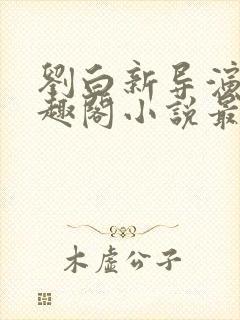 劉白新导演
趣阁小説最
木虚公子